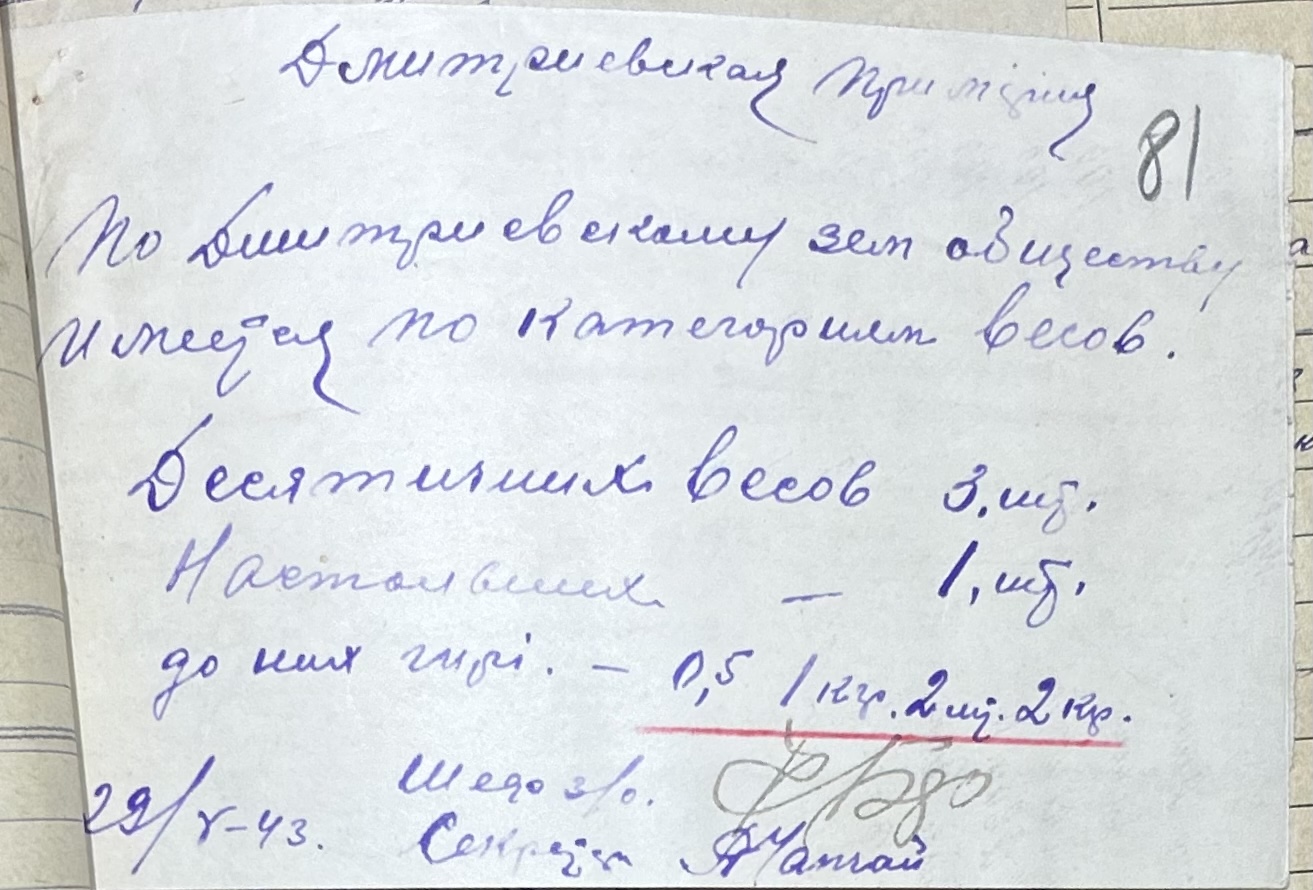 Дмитриевская
81
По Дмитриевскому зем обществу
имеется по категориям весов.
Десятичних весов 3.шт.
Настольних — 1.шт.
до них гирі. — 0,5 1 кгр. 2 шт. 2 кгр.
29/V-43. з/о.
Секретар